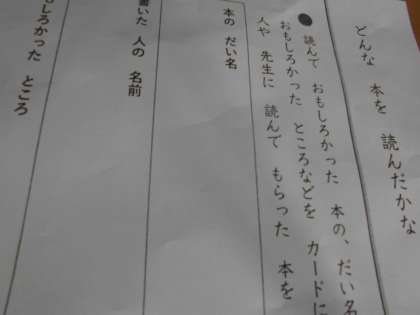 どんな 本を 読んだかな
● 読んで おもしろかった 本の、だい名
おもしろかった ところなどを カードに
人や 先生に 読んで もらった 本を
本の だい名
書いた 人の 名前
もしろかった ところ